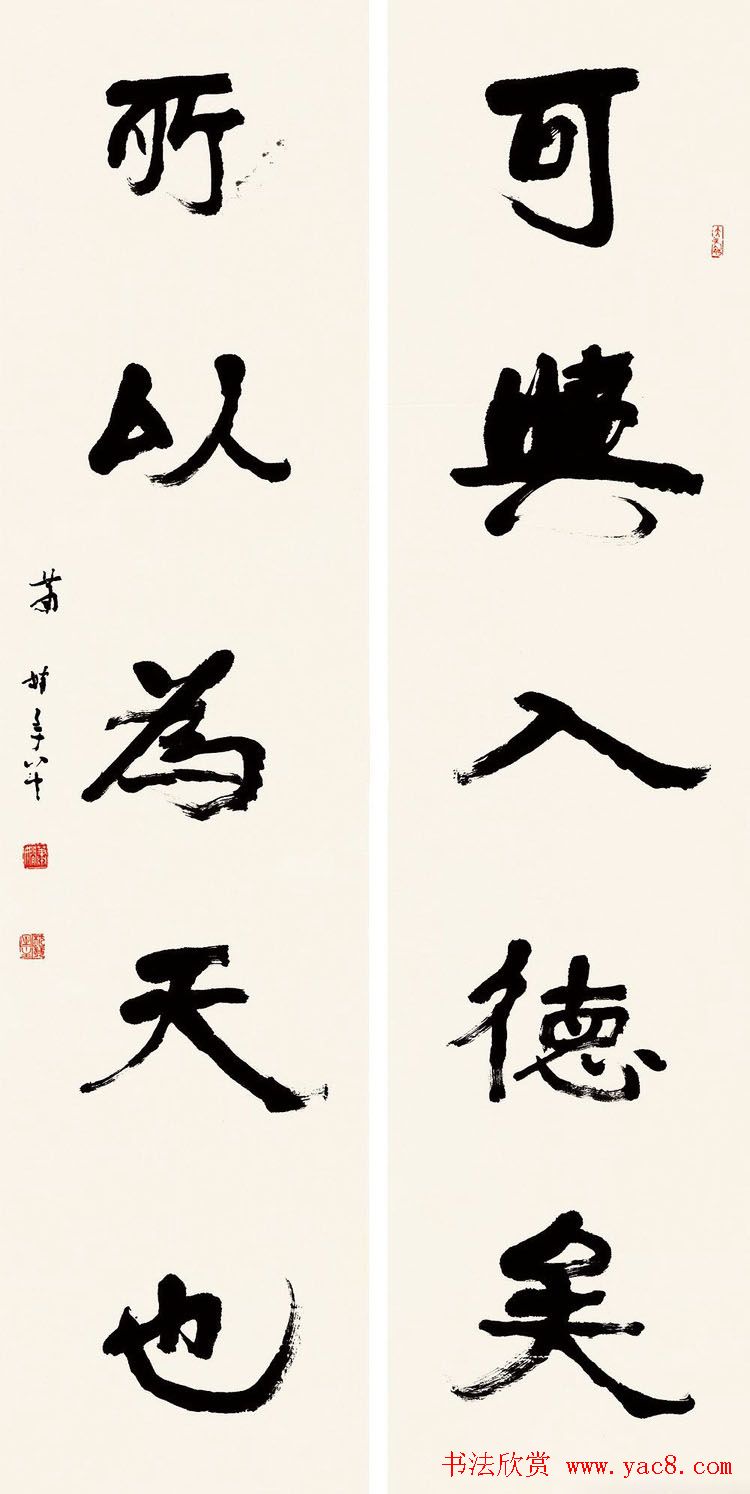 可與入德矣
所以為天也
萧娴年八十
书法欣赏 www.yac8.com